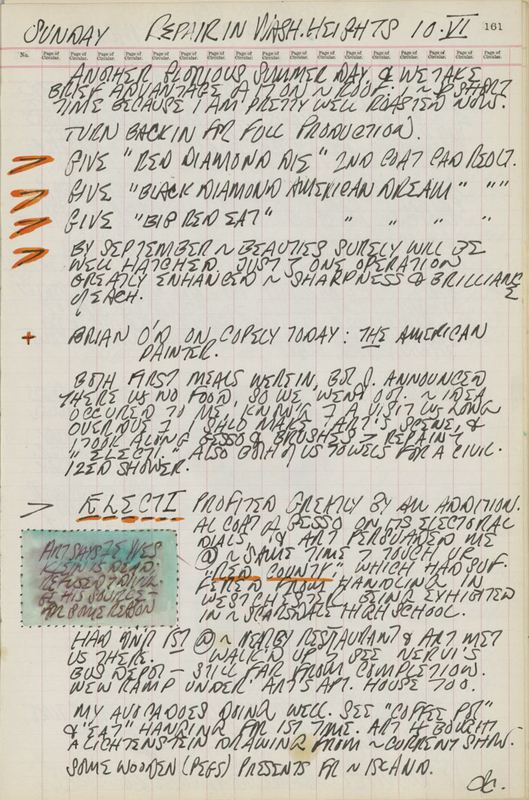 SUNDAY REPAIR IN WASH. HEIGHTS 10·VI 161
No. Page of Circular. Page of Circular. Page of Circular. Page of Circular. Page of Circular. Page of Circular. Page of Circular. Page of Circular. Page of Circular. Page of Circular. Page of Circular. Page of Circular. Page of Circular. Page of Circular. Page of Circular. Page of Circular.
ANOTHER GLORIOUS SUMMER DAY, & WE TAKE
BRIEF ADVANTAGE OF IT ON ~ ROOF. A SHORT
TIME BECAUSE I AM PRETTY WELL ROASTED NOW.
TURN BACK IN FOR FULL PRODUCTION.
GIVE "RED DIAMOND DIE" 2ND COAT CAD RED LT.
GIVE "BLACK DIAMOND AMERICAN DREAM" " "
GIVE "BIG RED EAT" " " " "
BY SEPTEMBER ~ BEAUTIES SURELY WILL BE
WELL HATCHED. JUST ONE OPERATION
GREATLY ENHANCED ~ SHARPNESS & BRILLIANCE
OF EACH.
+ BRIAN O'D ON COPELY TODAY: THE AMERICAN
PAINTER.
BOTH FIRST MEALS WEREIN, BUT J. ANNOUNCED
THERE WS NO FOOD, SO WE WENT OUT. ~ IDEA
OCCURED TO ME, KNOW'G A VISIT WS LONG
OVERDUE I SHLD MAKE ART'S SCENE, &
I TOOK ALONG GESSO & BRUSHES REPAINT
"ELECTI." ALSO BOTH OF US TOWELS FOR A CIVIL-
IZED SHOWER.
> ELECTI PROFITED GREATLY BY AN ADDITION-
AL COAT OF GESSO ON ITS ELECTORAL
DIALS & ART PERSUADED ME
@ ~ SAME TIME TOUCH UP
"RED COUNTY" WHICH HAD SUF-
FERED FROM HANDLING IN
WESTCHESTER BEING EXHIBITED
IN ~ SCARSDALE HIGH SCHOOL.
ART SAYS YVES
KLEIN IS DEAD.
REFUSED
SOURCE
FOR SOME REASON
HAD OUR 1ST @ ~ NEARBY RESTAURANT & ART MET
US THERE. — WALK'D UP SEE NERVI'S
BUS DEPOT — STILL FAR FROM COMPLETION.
NEW RAMP UNDER ART'S APT. HOUSE TOO.
MY AVOCADOES DOING WELL. SEE "COFFEE POT"
& "EAT" HANGING FOR 1ST TIME. ART BOUGHT
A LICHTENSTEIN DRAWING FROM ~ CURRENT SHOW.
SOME WOODEN (PEGS) PRESENTS FR ~ ISLAND.